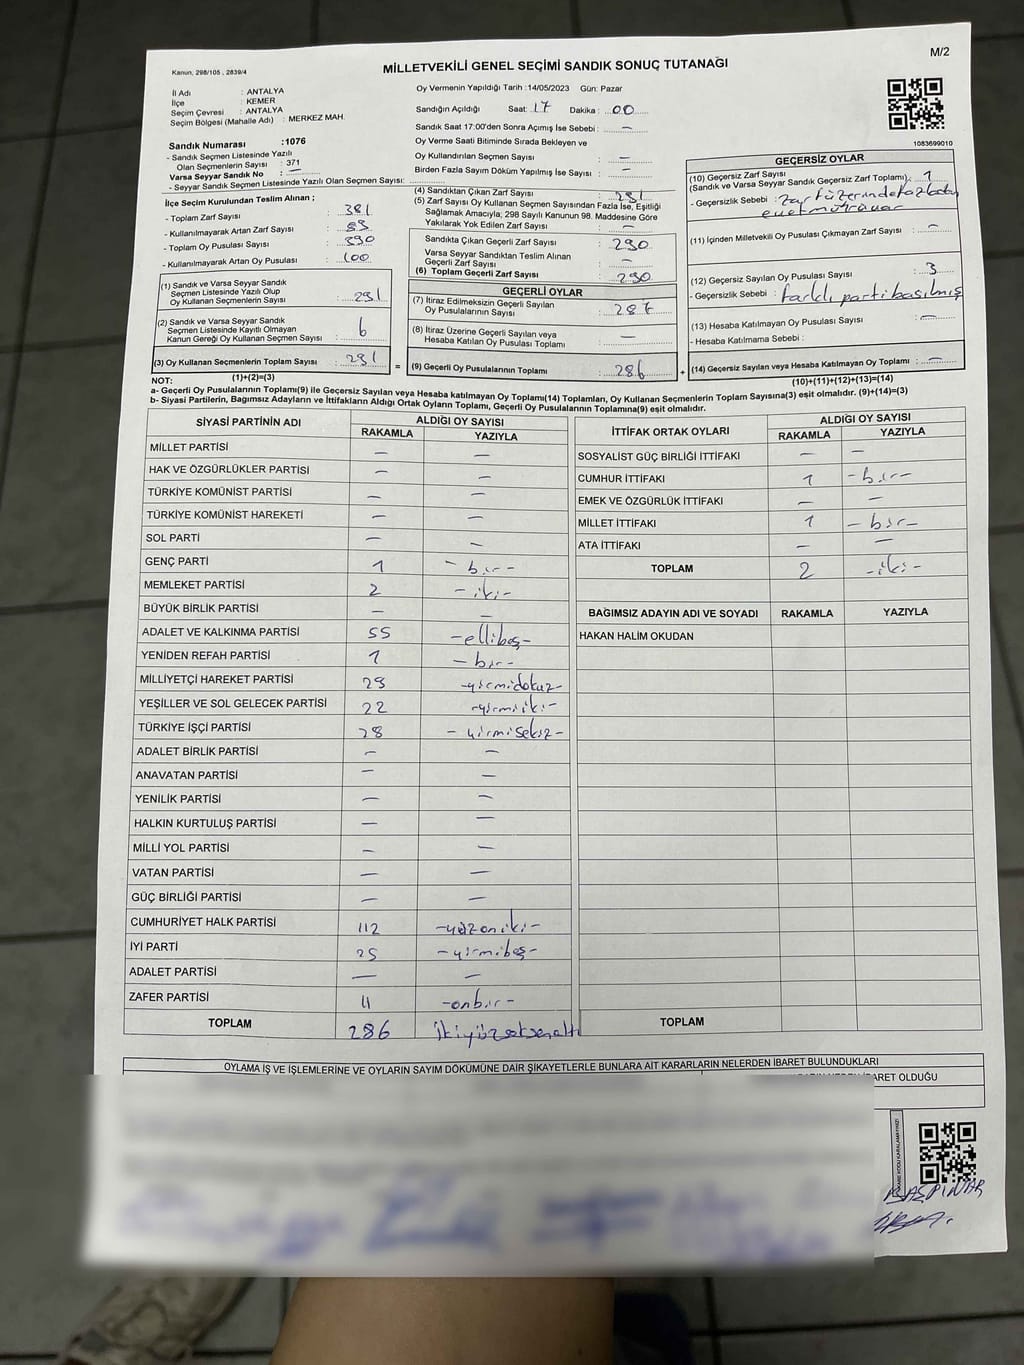 M/2
Kanun, 298/105 , 2839/4
MİLLETVEKİLİ GENEL SEÇİMİ SANDIK SONUÇ TUTANAĞI
İl Adı : ANTALYA
İlçe : KEMER
Seçim Çevresi : ANTALYA
Seçim Bölgesi (Mahalle Adı) : MERKEZ MAH.
Sandık Numarası :1076
- Sandık Seçmen Listesinde Yazılı
Olan Seçmenlerin Sayısı : 371
Varsa Seyyar Sandık No : —
- Seyyar Sandık Seçmen Listesinde Yazılı Olan Seçmen Sayısı:
İlçe Seçim Kurulundan Teslim Alınan ;
- Toplam Zarf Sayısı : 381
- Kullanılmayarak Artan Zarf Sayısı :
- Toplam Oy Pusulası Sayısı : 390
- Kullanılmayarak Artan Oy Pusulası : 100
(1) Sandık ve Varsa Seyyar Sandık
Seçmen Listesinde Yazılı Olup
Oy Kullanan Seçmenlerin Sayısı : 291
(2) Sandık ve Varsa Seyyar Sandık
Seçmen Listesinde Kayıtlı Olmayan
Kanun Gereği Oy Kullanan Seçmen Sayısı : 6
(3) Oy Kullanan Seçmenlerin Toplam Sayısı : 291
(1)+(2)=(3)
Oy Vermenin Yapıldığı Tarih :14/05/2023 Gün: Pazar
Sandığın Açıldığı Saat: 17 Dakika : 00
Sandık Saat 17:00'den Sonra Açılmış İse Sebebi : —
Oy Verme Saati Bitiminde Sırada Bekleyen ve
Oy Kullandırılan Seçmen Sayısı : —
Birden Fazla Sayım Döküm Yapılmış İse Sayısı : —
(4) Sandıktan Çıkan Zarf Sayısı : 291
(5) Zarf Sayısı Oy Kullanan Seçmen Sayısından Fazla İse, Eşitliği
Sağlamak Amacıyla; 298 Sayılı Kanunun 98. Maddesine Göre
Yakılarak Yok Edilen Zarf Sayısı : —
Sandıkta Çıkan Geçerli Zarf Sayısı : 290
Varsa Seyyar Sandıktan Teslim Alınan
Geçerli Zarf Sayısı : —
(6) Toplam Geçerli Zarf Sayısı : 290
GEÇERLİ OYLAR
(7) İtiraz Edilmeksizin Geçerli Sayılan
Oy Pusulalarının Sayısı : 287
(8) İtiraz Üzerine Geçerli Sayılan veya
Hesaba Katılan Oy Pusulası Toplamı : —
= (9) Geçerli Oy Pusulalarının Toplamı : 286
1083699010
GEÇERSİZ OYLAR
(10) Geçersiz Zarf Sayısı
(Sandık ve Varsa Seyyar Sandık Geçersiz Zarf Toplamı) : 1
- Geçersizlik Sebebi : zarf üzerinde fazladan
evet mührü var
(11) İçinden Milletvekili Oy Pusulası Çıkmayan Zarf Sayısı : —
(12) Geçersiz Sayılan Oy Pusulası Sayısı : 3
- Geçersizlik Sebebi : farklı parti basılmış
(13) Hesaba Katılmayan Oy Pusulası Sayısı : —
- Hesaba Katılmama Sebebi :
+ (14) Geçersiz Sayılan veya Hesaba Katılmayan Oy Toplamı : —
(10)+(11)+(12)+(13)=(14)
NOT:
a- Geçerli Oy Pusulalarının Toplamı(9) ile Geçersiz Sayılan veya Hesaba katılmayan Oy Toplamı(14) Toplamları, Oy Kullanan Seçmenlerin Toplam Sayısına(3) eşit olmalıdır. (9)+(14)=(3)
b- Siyasi Partilerin, Bağımsız Adayların ve İttifakların Aldığı Ortak Oyların Toplamı, Geçerli Oy Pusulalarının Toplamına(9) eşit olmalıdır.
SİYASİ PARTİNİN ADI ALDIĞI OY SAYISI
RAKAMLA YAZIYLA
MİLLET PARTİSİ — —
HAK VE ÖZGÜRLÜKLER PARTİSİ — —
TÜRKİYE KOMÜNİST PARTİSİ — —
TÜRKİYE KOMÜNİST HAREKETİ — —
SOL PARTİ — —
GENÇ PARTİ 1 -bir-
MEMLEKET PARTİSİ 2 -iki-
BÜYÜK BİRLİK PARTİSİ — —
ADALET VE KALKINMA PARTİSİ 55 -ellibeş-
YENİDEN REFAH PARTİSİ 1 -bir-
MİLLİYETÇİ HAREKET PARTİSİ 29 -yirmidokuz-
YEŞİLLER VE SOL GELECEK PARTİSİ 22 -yirmiiki-
TÜRKİYE İŞÇİ PARTİSİ 28 -yirmisekiz-
ADALET BİRLİK PARTİSİ — —
ANAVATAN PARTİSİ — —
YENİLİK PARTİSİ — —
HALKIN KURTULUŞ PARTİSİ — —
MİLLİ YOL PARTİSİ — —
VATAN PARTİSİ — —
GÜÇ BİRLİĞİ PARTİSİ — —
CUMHURİYET HALK PARTİSİ 112 -yüzoniki-
İYİ PARTİ 25 -yirmibeş-
ADALET PARTİSİ — —
ZAFER PARTİSİ 11 -onbir-
TOPLAM 286 ikiyüzseksenaltı
İTTİFAK ORTAK OYLARI ALDIĞI OY SAYISI
RAKAMLA YAZIYLA
SOSYALİST GÜÇ BİRLİĞİ İTTİFAKI — —
CUMHUR İTTİFAKI 1 -bir-
EMEK VE ÖZGÜRLÜK İTTİFAKI — —
MİLLET İTTİFAKI 1 -bir-
ATA İTTİFAKI — —
TOPLAM 2 -iki-
BAĞIMSIZ ADAYIN ADI VE SOYADI RAKAMLA YAZIYLA
HAKAN HALİM OKUDAN
TOPLAM
OYLAMA İŞ VE İŞLEMLERİNE VE OYLARIN SAYIM DÖKÜMÜNE DAİR ŞİKAYETLERLE BUNLARA AİT KARARLARIN NELERDEN İBARET BULUNDUKLARI
İBARET OLDUĞU
BAŞPINAR